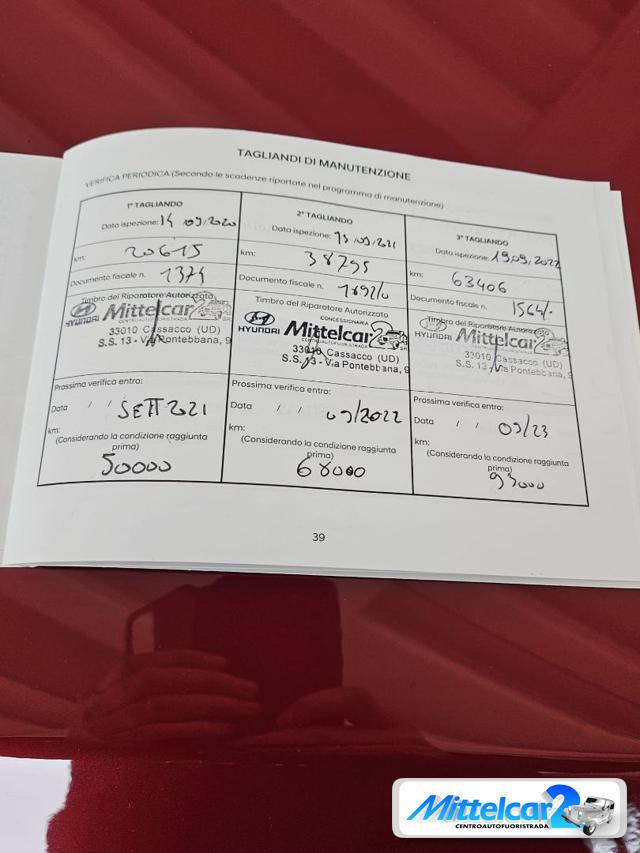 TAGLIANDI DI MANUTENZIONE
VERIFICA PERIODICA (Secondo le scadenze riportate nel programma di manutenzione)
1° TAGLIANDO
Data ispezione: 14 09 2020
km: 20615
Documento fiscale n. 1374
Timbro del Riparatore Autorizzato
HYUNDAI Mittelcar 2
CENTROAUTOFUORISTRADA
33010 Cassacco (UD)
S.S. 13 - Via Pontebbana, 9
Prossima verifica entro:
Data / / SETT 2021
km:
(Considerando la condizione raggiunta prima)
50000
2° TAGLIANDO
Data ispezione: 13/09/2021
km: 38795
Documento fiscale n. 1892/0
Timbro del Riparatore Autorizzato
CONCESSIONARIA
HYUNDAI Mittelcar 2
CENTROAUTOFUORISTRADA
33010 Cassacco (UD)
S.S. 13 - Via Pontebbana, 9
Prossima verifica entro:
Data / / 09/2022
km:
(Considerando la condizione raggiunta prima)
68000
3° TAGLIANDO
Data ispezione: 19.09.2022
km: 63406
Documento fiscale n. 1564/.
Timbro del Riparatore Autorizzato
HYUNDAI Mittelcar 2
33010 Cassacco (UD)
S.S. 13 - Via Pontebbana, 9
Prossima verifica entro:
Data / / 09/23
km:
(Considerando la condizione raggiunta prima)
93000
39
Mittelcar 2
CENTROAUTOFUORISTRADA